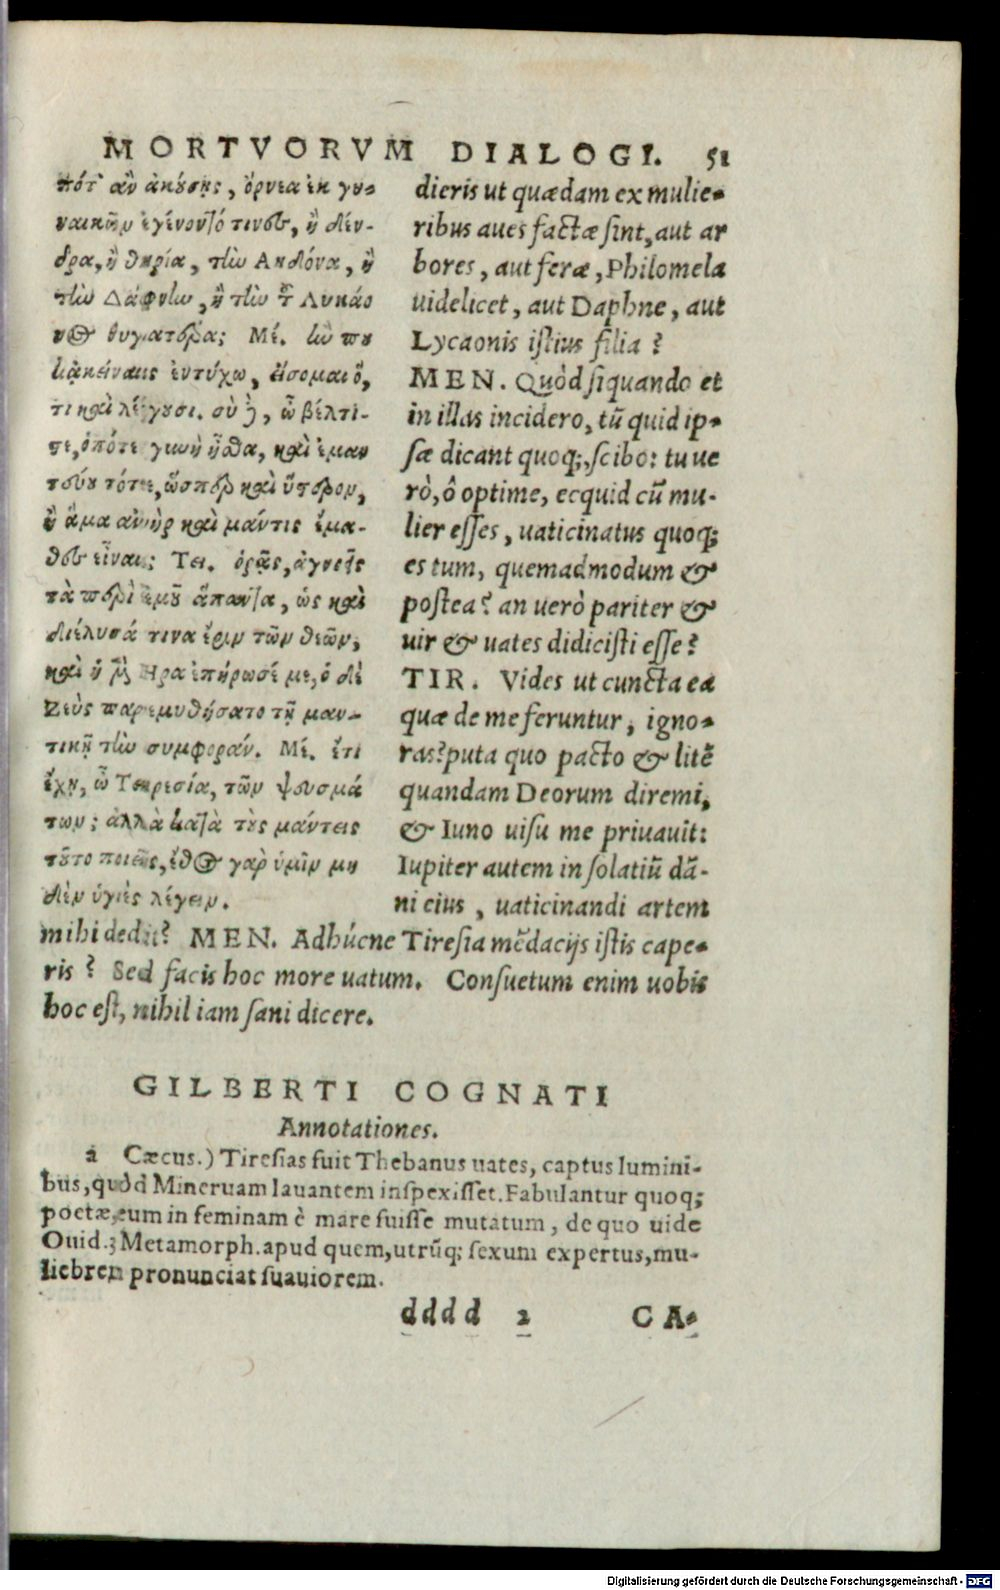 MORTVORVM DIALOGI. 51
πότ' ἂν ἀκούσῃς, ὄρνεα ἐκ γυ-
ναικῶν ἐγένοντό τινες, ἢ δέν-
δρα, ἢ θηρία, τὴν Ἀηδόνα, ἢ
τὴν Δάφνην, ἢ τὴν τοῦ Λυκάο
νος θυγατέρα; Μέ. ἢν που
κἀκείναις ἐντύχω, εἴσομαι ὅ,
τι καὶ λέγουσι. σὺ δὲ, ὦ βέλτι-
στε, ὁπότε γυνὴ ἦσθα, καὶ ἐμαν
τεύου τότε, ὥσπερ καὶ ὕστερον,
ἢ ἅμα ἀνὴρ καὶ μάντις ἔμα-
θες εἶναι; Τει. ὁρᾷς, ἀγνοεῖς
τὰ περὶ ἐμοῦ ἅπαντα, ὡς καὶ
διέλυσά τινα ἔριν τῶν θεῶν,
καὶ ἡ μὲν Ἥρα ἐπήρωσέ με, ὁ δὲ
Ζεὺς παρεμυθήσατο τῇ μαν-
τικῇ τὴν συμφοράν. Μέ. ἔτι
ἔχῃ, ὦ Τειρεσία, τῶν ψευσμά
των; ἀλλὰ κατὰ τοὺς μάντεις
τοῦτο ποιεῖς, ἔθος γὰρ ὑμῖν μη
δὲν ὑγιὲς λέγειν.
dieris ut quædam ex mulie-
ribus aues factæ sint, aut ar
bores, aut feræ, Philomela
uidelicet, aut Daphne, aut
Lycaonis istius filia?
MEN. Quòd siquando et
in illas incidero, tũ quid ip-
sæ dicant quoq;, scibo: tu ue
rò, ô optime, ecquid cũ mu-
lier esses, uaticinatus quoq;
es tum, quemadmodum &
postea? an uerò pariter &
uir & uates didicisti esse?
TIR. Vides ut cuncta ea
quæ de me feruntur, igno-
ras? puta quo pacto & litẽ
quandam Deorum diremi,
& Iuno uisu me priuauit:
Iupiter autem in solatiũ dã-
ni eius, uaticinandi artem
mihi dedit? MEN. Adhúcne Tiresia mẽdacijs istis cape-
ris? Sed facis hoc more uatum. Consuetum enim uobis
hoc est, nihil iam sani dicere.
GILBERTI COGNATI
Annotationes.
a Cæcus.) Tiresias fuit Thebanus uates, captus lumini-
bus, quòd Mineruam lauantem inspexisset. Fabulantur quoq;
poetæ, eum in feminam è mare fuisse mutatum, de quo uide
Ouid. 3 Metamorph. apud quem, utrũq; sexum expertus, mu-
liebrem pronunciat suauiorem.
dddd 2 CA-
Digitalisierung gefördert durch die Deutsche Forschungsgemeinschaft - DFG